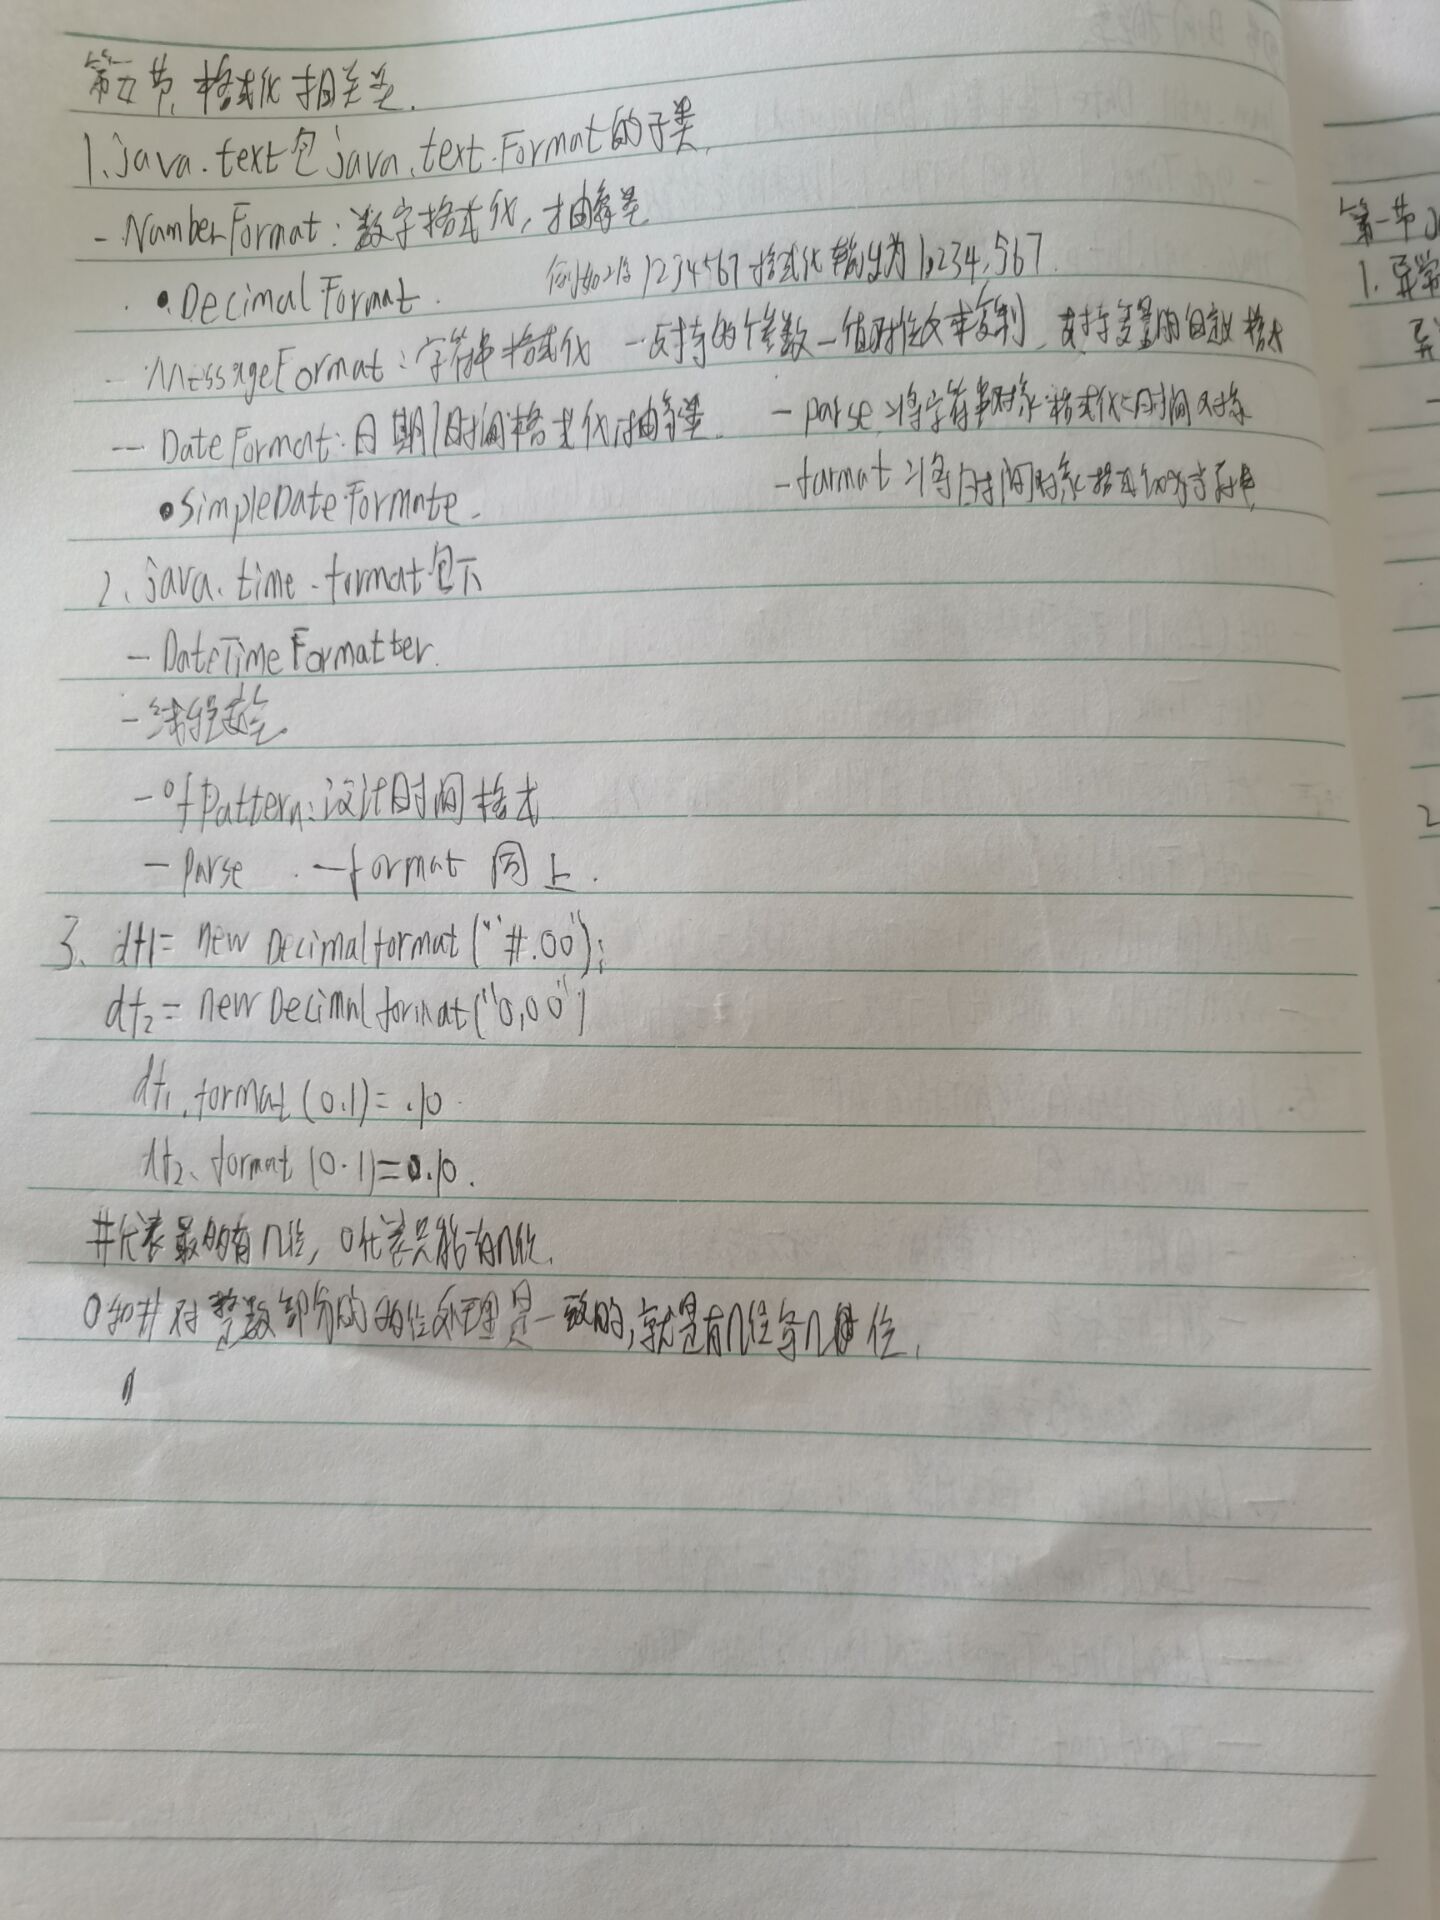 第五节、格式化相关类.
1、java.text包java.text.Format的子类,
- NumberFormat: 数字格式化, 抽象类
• DecimalFormat. 例如将1234567格式化输出为1,234,567.
- MessageFormat: 字符串格式化 - 支持多个参数-值对位文本复制, 支持变量的自定义格式
- DateFormat: 日期/时间格式化抽象类. - parse: 将字符串对象格式化为时间对象
•SimpleDateFormate. - format: 将时间对象格式化为字符串
2、java.time.format包下
- DateTimeFormatter.
- 线程安全
- ofPattern: 设计时间格式
- parse - format 同上.
3、df1= new Decimalformat("#.00");
df2= new Decimalformat("0,00")
df1.format(0.1)= .10
df2.format(0.1)=0.10.
#代表最多有n位, 0代表只能有n位.
0和#对整数部分的 处理是一致的, 就是有几位写几位.
第一节
1. 异常
异
2